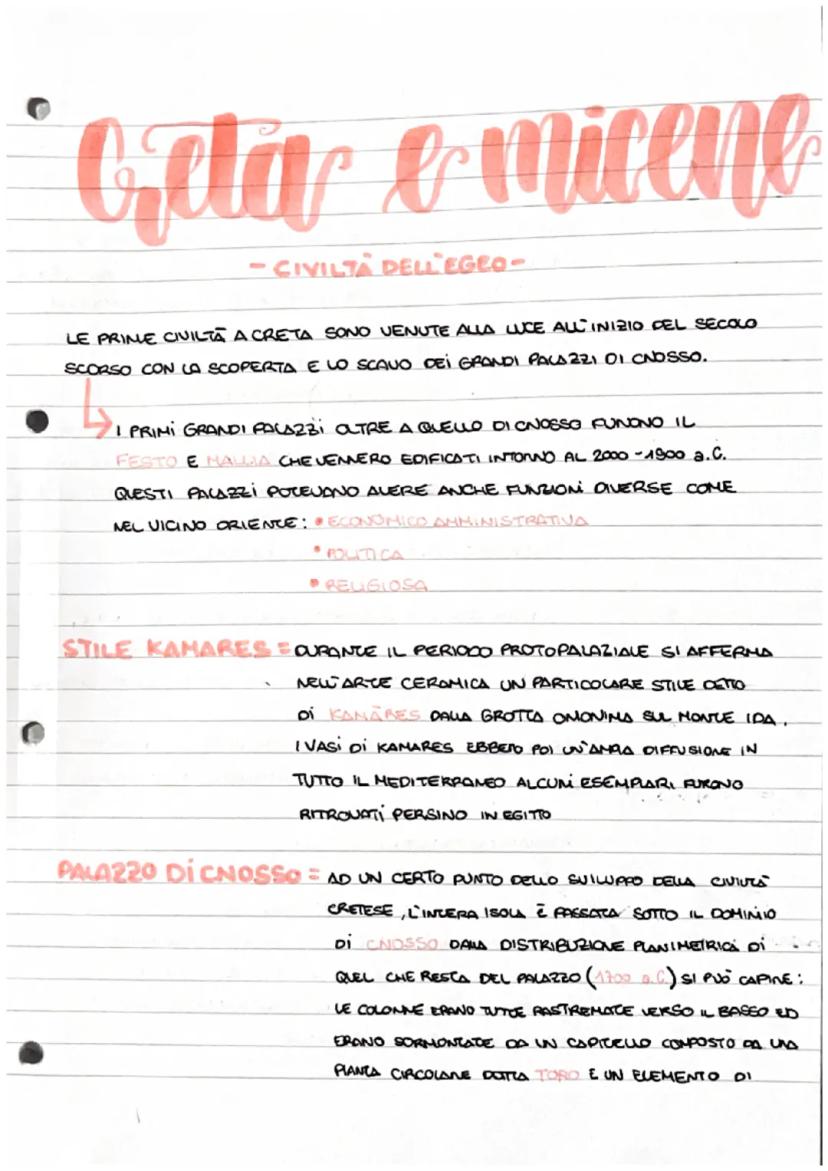 Creta e micene
- CIVILTÀ DELL'EGEO -
LE PRIME CIVILTÀ A CRETA SONO VENUTE ALLA LUCE ALL'INIZIO DEL SECOLO
SCORSO CON LA SCOPERTA E LO SCAVO DEI GRANDI PALAZZI DI CNOSSO.
I PRIMI GRANDI PALAZZI OLTRE A QUELLO DI CNOSSO FURONO IL
FESTO E MALLIA CHE VENNERO EDIFICATI INTORNO AL 2000-1900 a.C.
QUESTI PALAZZI POTEVANO AVERE ANCHE FUNZIONI DIVERSE COME
NEL VICINO ORIENTE: • ECONOMICO AMMINISTRATIVA
• POLITICA
• RELIGIOSA
STILE KAMARES = DURANTE IL PERIODO PROTOPALAZIALE SI AFFERMA
NELL'ARTE CERAMICA UN PARTICOLARE STILE DETTO
DI KAMARES DALLA GROTTA OMONIMA SUL MONTE IDA.
I VASI DI KAMARES EBBERO POI UN'AMPIA DIFFUSIONE IN
TUTTO IL MEDITERRANEO ALCUNI ESEMPLARI FURONO
RITROVATI PERSINO IN EGITTO
PALAZZO DI CNOSSO = AD UN CERTO PUNTO DELLO SVILUPPO DELLA CIVILTÀ
CRETESE, L'INTERA ISOLA È PASSATA SOTTO IL DOMINIO
DI CNOSSO DALLA DISTRIBUZIONE PLANIMETRICA DI
QUEL CHE RESTA DEL PALAZZO (1700 a.C.) SI PUÒ CAPIRE:
LE COLONNE ERANO TUTTE RASTREMATE VERSO IL BASSO ED
ERANO SORMONTATE DA UN CAPITELLO COMPOSTO DA UNA
PIANTA CIRCOLARE DETTA TORO E UN ELEMENTO DI